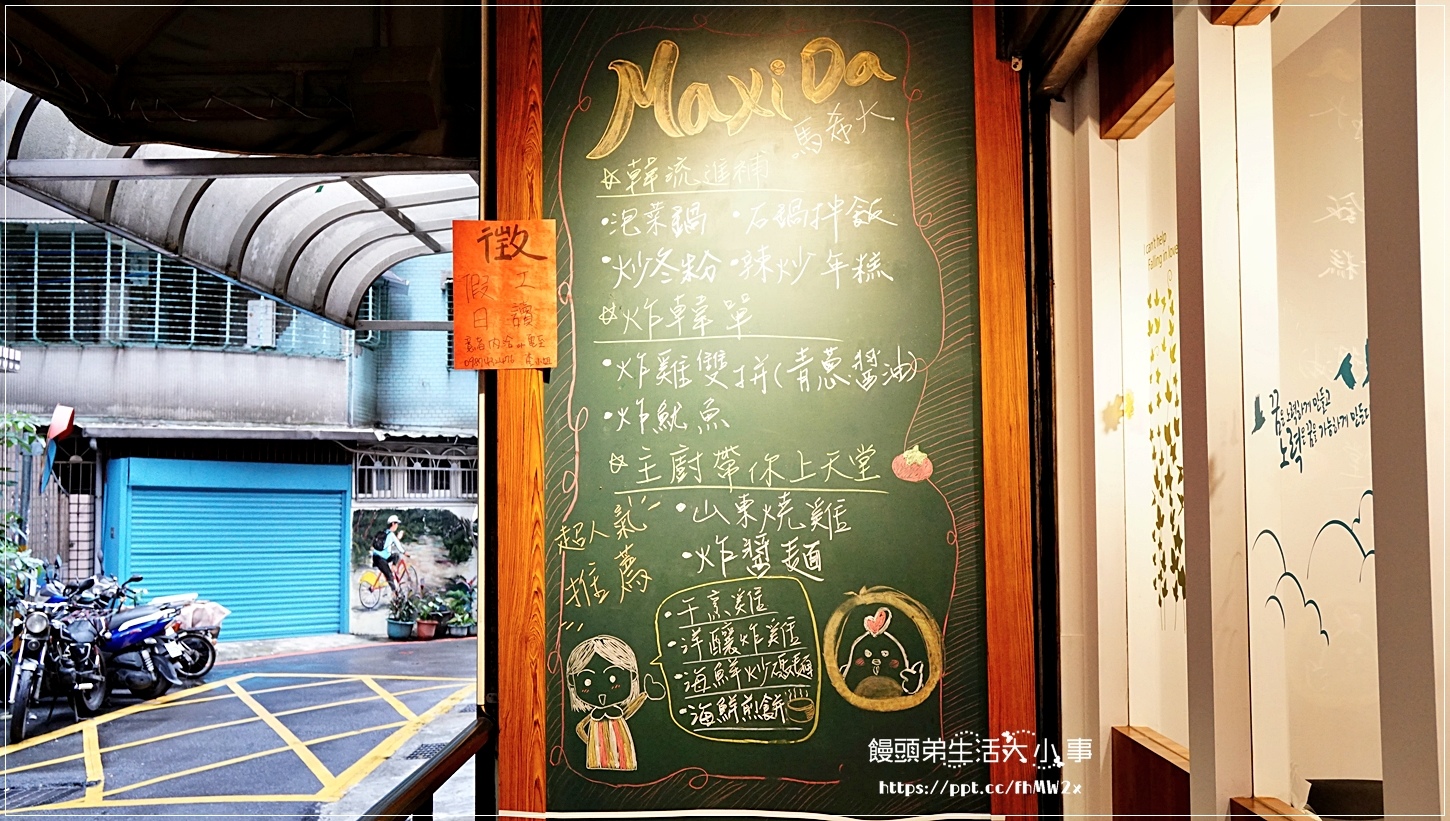 MaxiDa
馬希大
☆韓流進補
•泡菜鍋 •石鍋拌飯
•炒冬粉 •辣炒年糕
☆炸韓單
•炸雞雙拼(青蔥醬油)
•炸魷魚
☆主廚帶你上天堂
•山東燒雞
•炸醬麵
超人氣
推薦
•干烹雞
•洋釀炸雞
•海鮮炒碼麵
•海鮮煎餅
徵
假日
工讀
I can't help
Falling in love
꿈은 노력하게 만들고
노력은 꿈을 가능하게 만든다
饅頭弟生活大小事
https://ppt.cc/fhMW2x